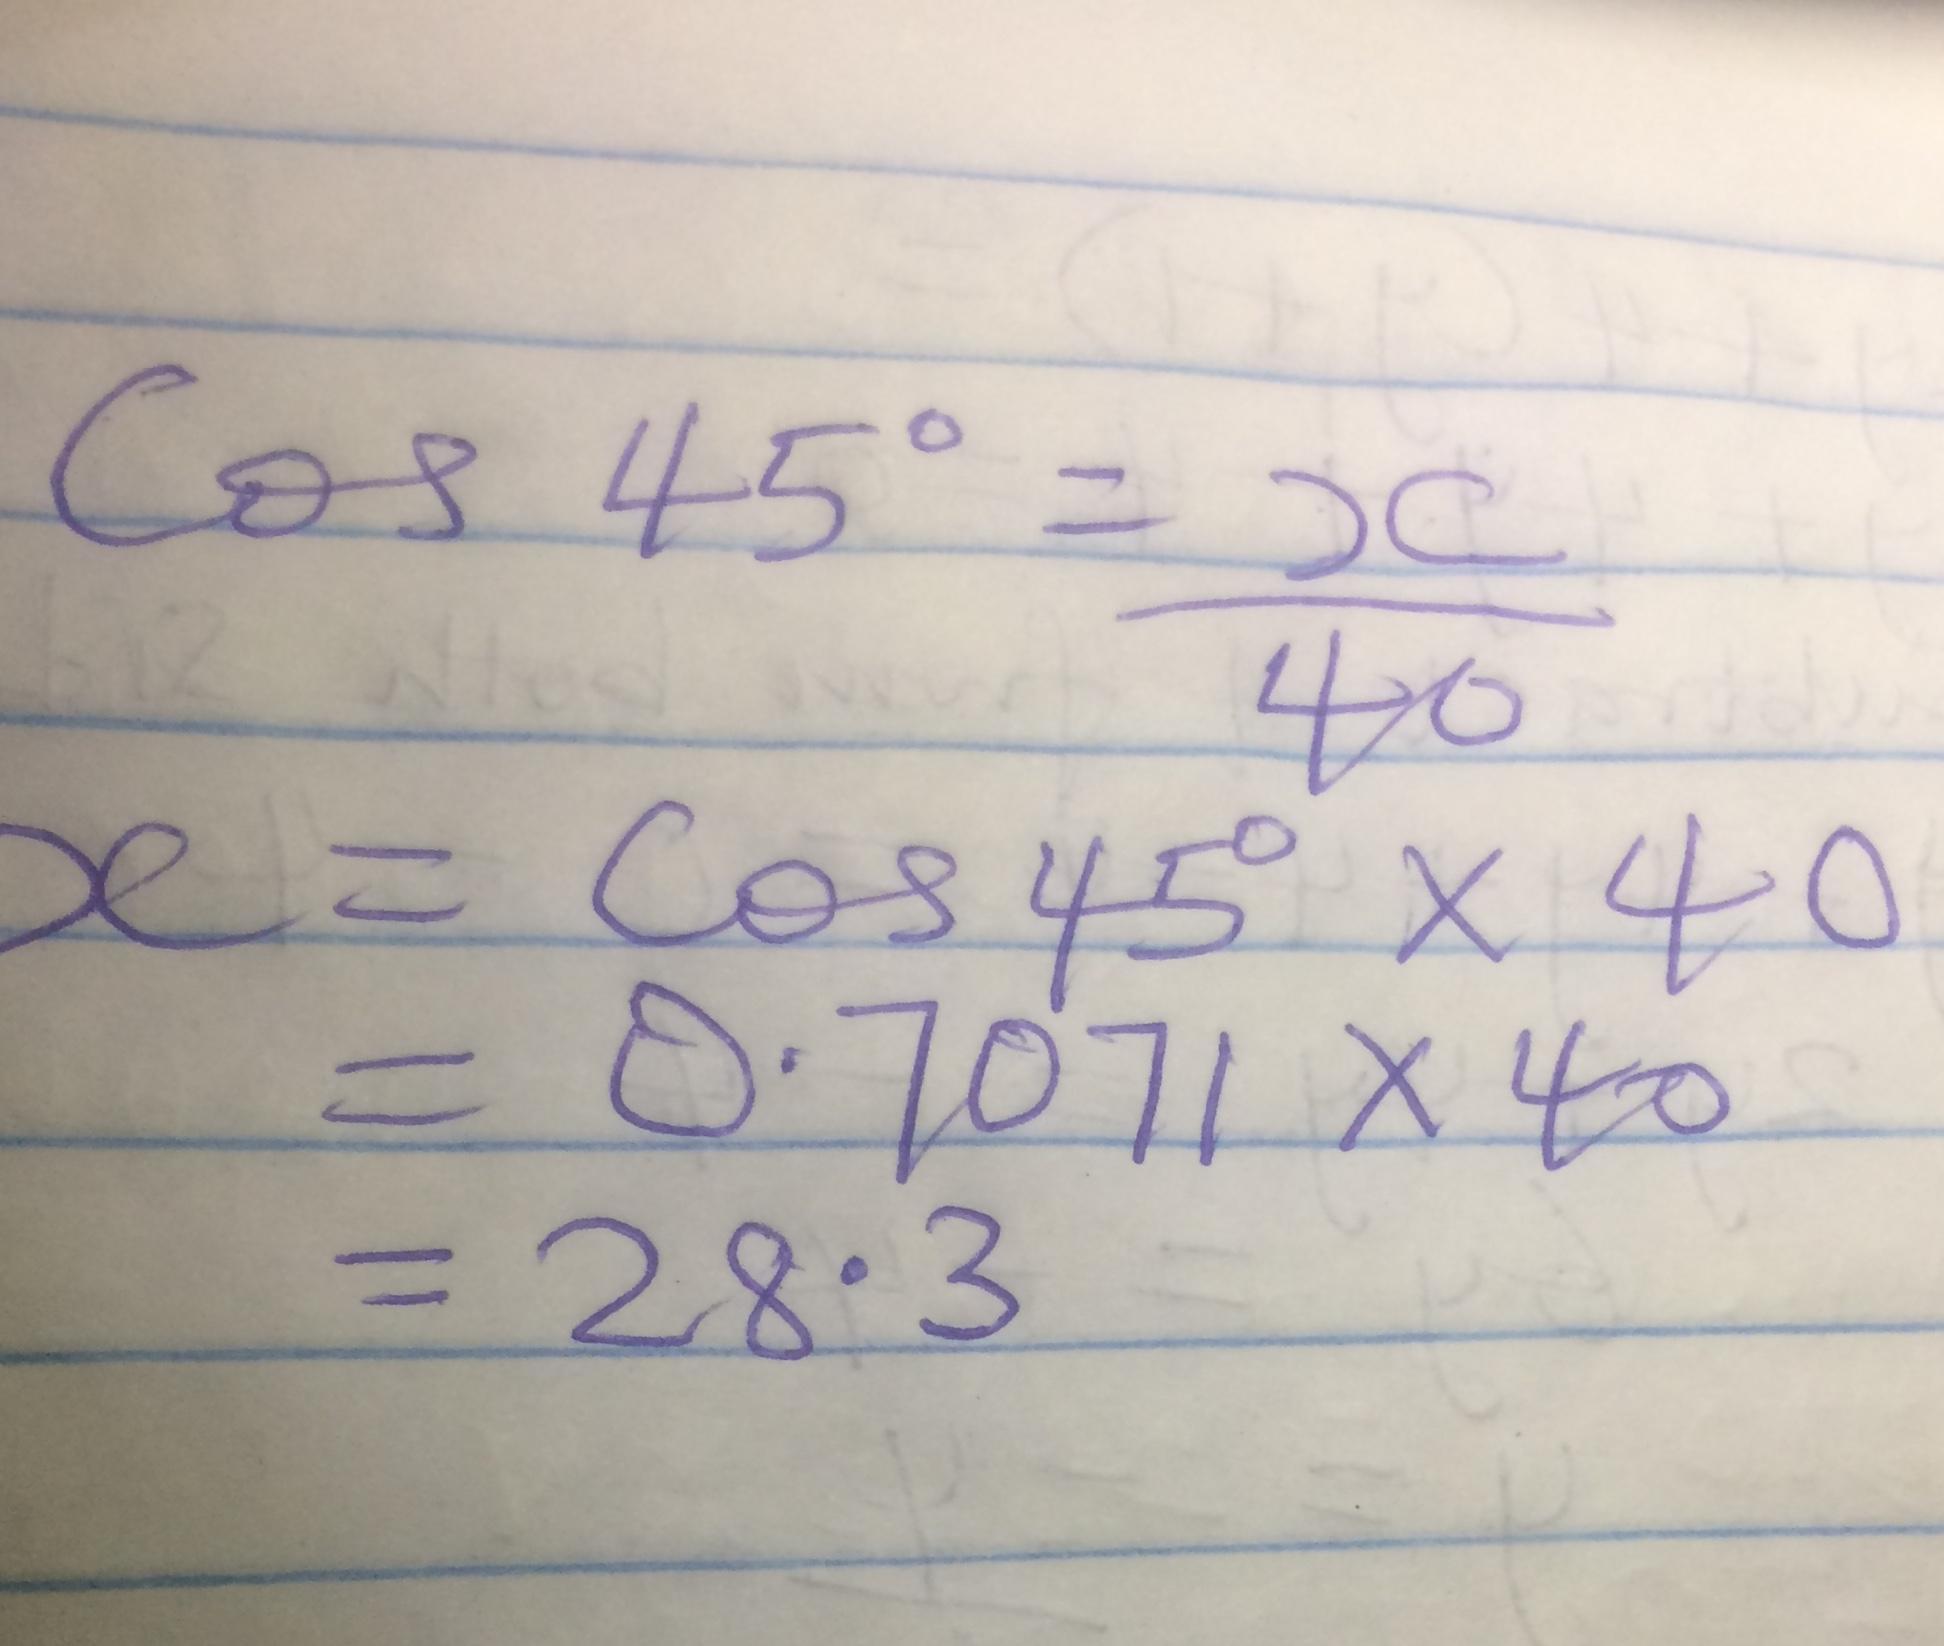 Cos 45° = x
40
x = Cos 45° × 40
= 0.7071 × 40
= 28.3